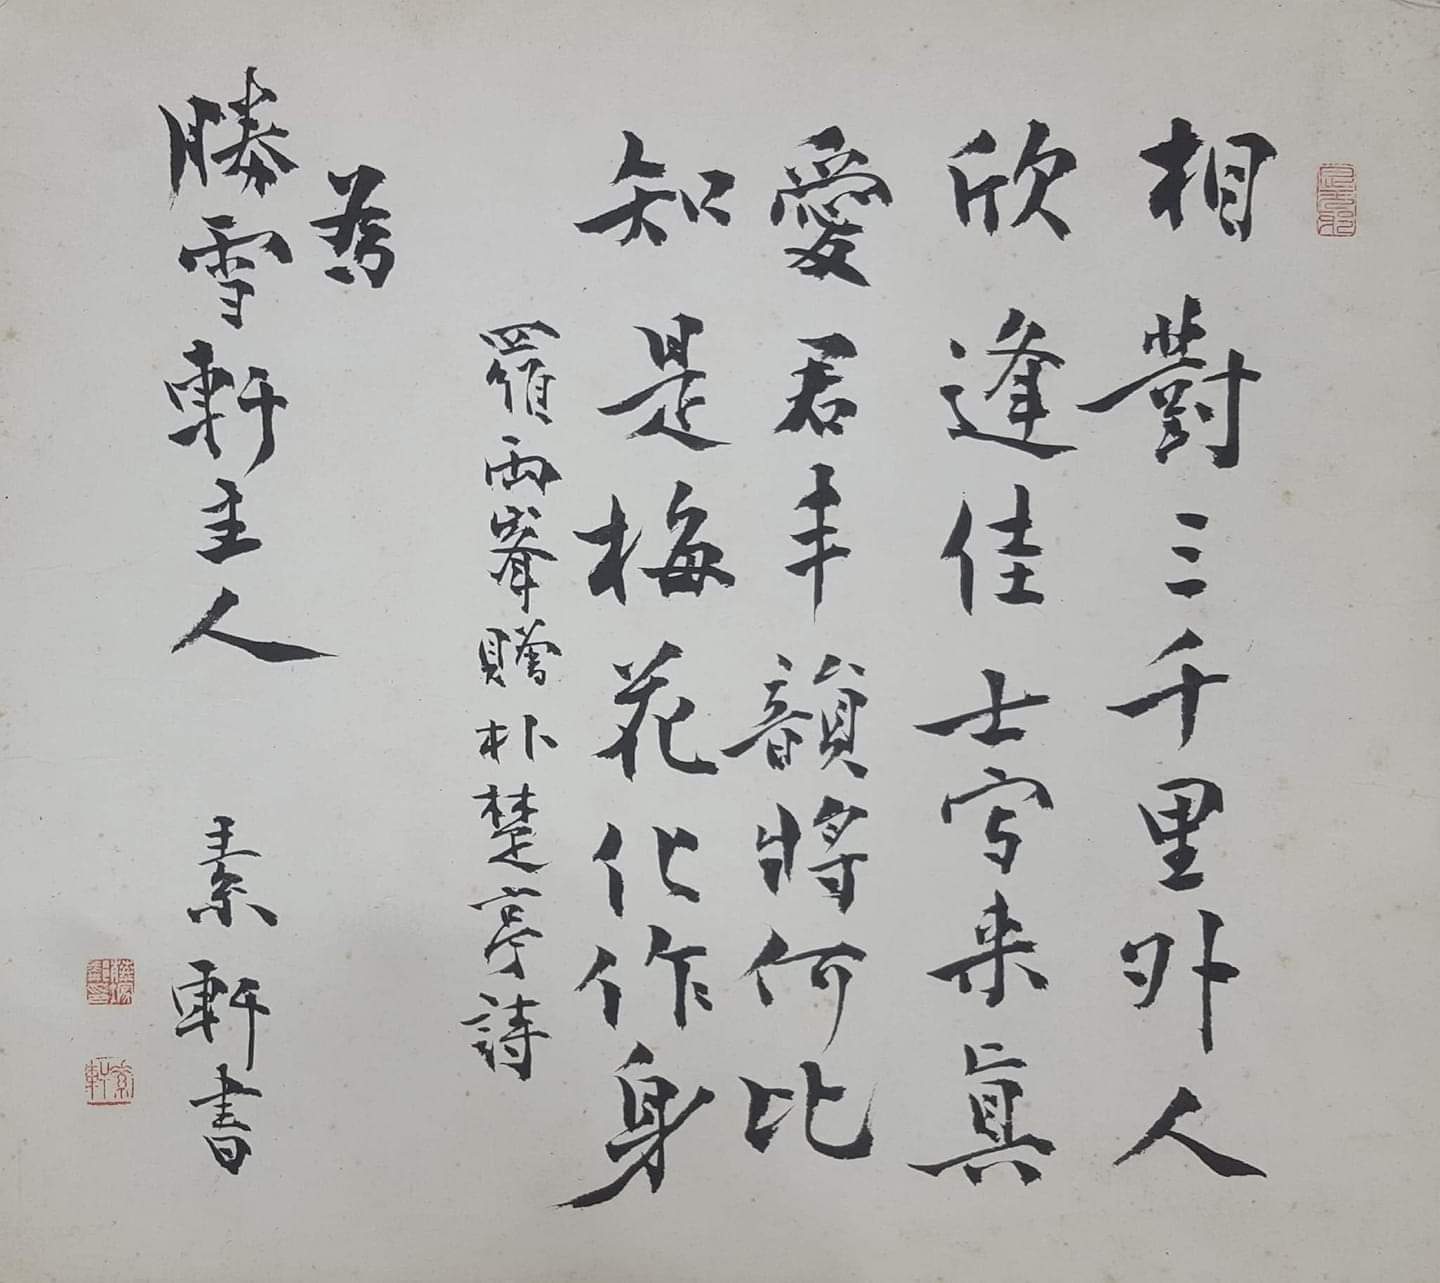 相對三千里外人
欣逢佳士寫來真
愛君丰韻將何比
知是梅花化作身
羅兩峯贈朴楚亭詩
為
勝雪軒主人
素軒書
素軒